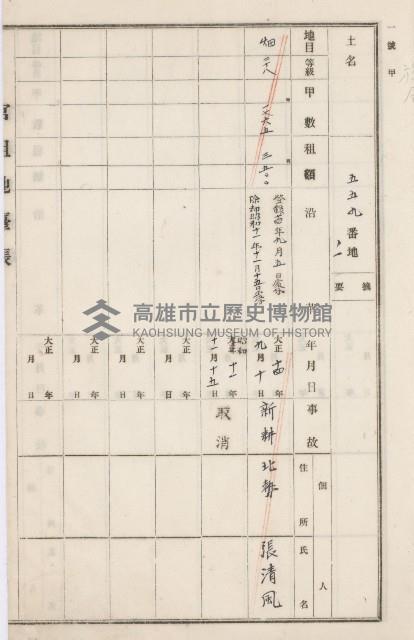 一號甲
土名
五五九番地
摘要
地目
等級
甲數
租額
沿革
年月日
事故
個人
住所
氏名
畑
二八
三五〇〇
登錄
年九月五日
昭和十一年十一月十五日
大正十四年九月十日
新耕
北勢
張清風
昭和
大正十一年十一月十五日
取消
大正年月日
大正年月日
大正年月日
大正年月日
官租地臺帳
高雄市立歷史博物館
KAOHSIUNG MUSEUM OF HISTORY